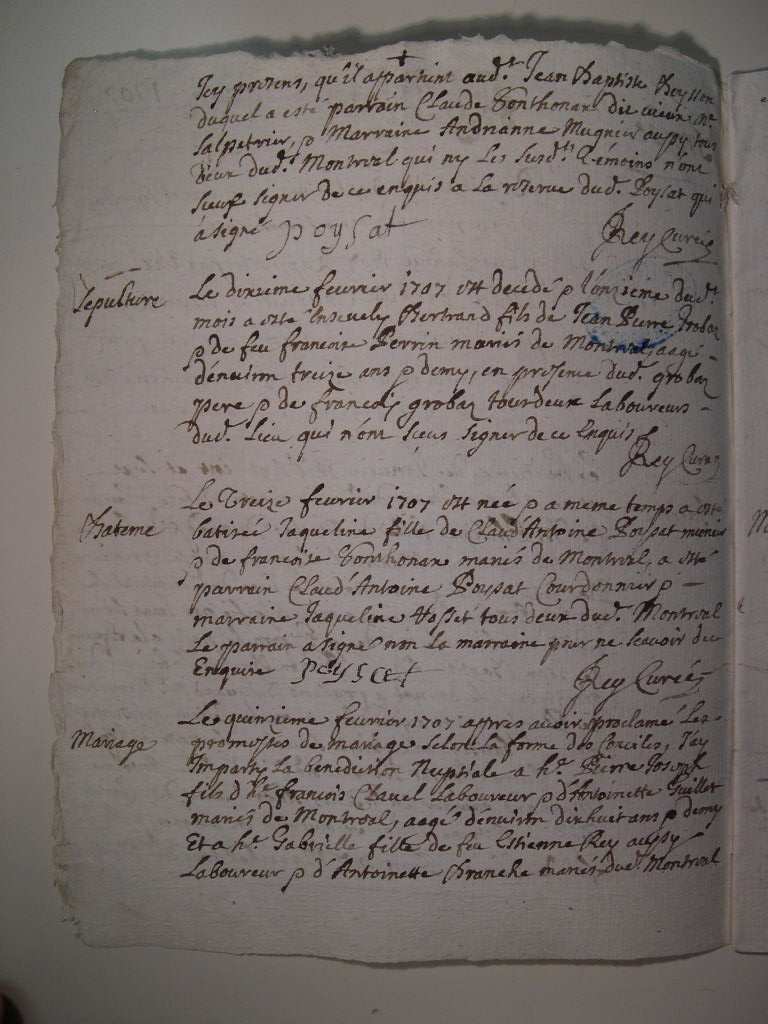 Icy presens, qu'il appartient aud.t Jean Baptiste
duquel a esté parrain Claude Vonthonax dit vieux m.e
salpetrier, p Marraine Andrianne Mugnier aussy tous
deux dud.t Montreal qui ny les susd.ts témoins n'ont
sceus signer de ce enquis a la reserve dud. Poysat qui
a signé poysat Rey Curé
Sepulture
Le dixieme fevrier 1707 est decedé p l'onzieme dud.t
mois a esté Ensevely Bertrand fils de Jean Pierre Grobaz
p de feu françoise Perrin mariés de Montreal, aagé
d'environ treize ans p demy, en presence dud. grobaz
pere p de françois grobaz tour deux Laboureurs
dud. Lieu qui n'ont sceus signer de ce Enquis
Rey Curé
Bateme
Le Treize fevrier 1707 est née p a meme temps a esté
batisée Jaqueline fille de Claud'Antoine Poysat munier
p de françoise Vonthonax mariés de Montreal, a esté
parrain Claud'Antoine Poysat Courdonnier p
marraine Jaqueline tous deux dud. Montreal
Le parrain a signé non la marraine pour ne scavoir de ce
Enquise Poysat Rey Curé
Mariage
Le quinzieme fevrier 1707 appres avoir proclamé Les
promesses de mariage selon la forme des Conciles, J'ay
Imparty La benediction Nuptiale a h.e Pierre Joseph
fils d'h.e françois Clavel Laboureur p d'Antoinette Guillot
mariés de Montreal, aagé d'environ dixhuit ans p demy
Et a h.e Gabrielle fille de feu Estienne Rey aussy
Laboureur p d'Antoinette Branche mariés dud. Montreal